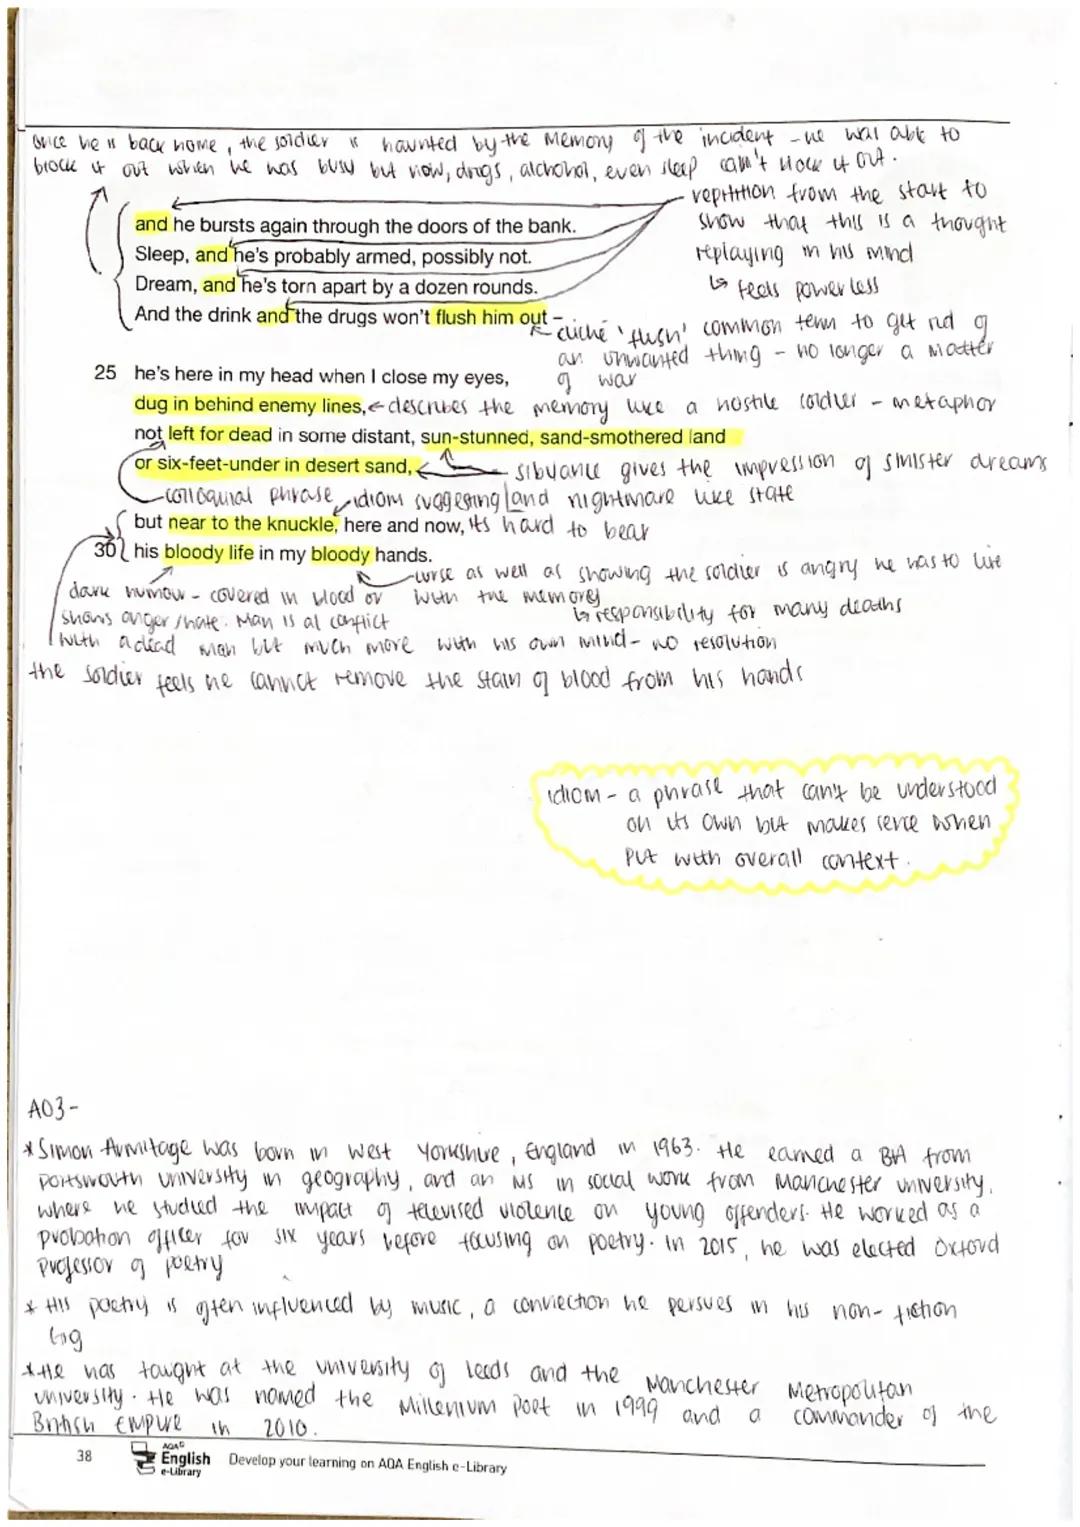 once he is back home, the soldier is haunted by the memory of the incident - he was able to
block it out when he was busy but now, drugs, alchohol, even sleep can't block it out.
reptition from the start to
show that this is a thought
replaying in his mind
↳ feels powerless
and he bursts again through the doors of the bank.
Sleep, and he's probably armed, possibly not.
Dream, and he's torn apart by a dozen rounds.
And the drink and the drugs won't flush him out –
cliché 'flush' common term to get rid of
an unwanted thing - no longer a matter
of war
25 he's here in my head when I close my eyes,
dug in behind enemy lines, ← describes the memory like a hostile soldier - metaphor
not left for dead in some distant, sun-stunned, sand-smothered land
or six-feet-under in desert sand, sibilance gives the impression of sinister dreams
colloquial phrase, idiom suggesting and nightmare like state
but near to the knuckle, here and now, its hard to bear
30 his bloody life in my bloody hands.
curse as well as showing the soldier is angry he has to live
with the memory
↳ responsibility for many deaths
dark humour - covered in blood or
shows anger/hate. Man is at conflict
with a dead man but much more with his own mind - no resolution
the soldier feels he cannot remove the stain of blood from his hands
idiom - a phrase that can't be understood
on its own but makes sence when
put with overall context.
A03-
* Simon Armitage was born in West Yorkshire, England in 1963. He earned a BA from
Portsmouth university in geography, and an MS in social work from Manchester university,
where he studied the impact of televised violence on young offenders. He worked as a
probation officer for six years before focusing on poetry. In 2015, he was elected Oxford
Professor of poetry
* His poetry is often influenced by music, a conviection he persues in his non-fiction
Gig
* He has taught at the university of Leeds and the Manchester Metropolitan
university. He was named the Millenium Poet in 1999 and a commander of the
British Empire in 2010.
38 AQA English e-Library Develop your learning on AQA English e-Library